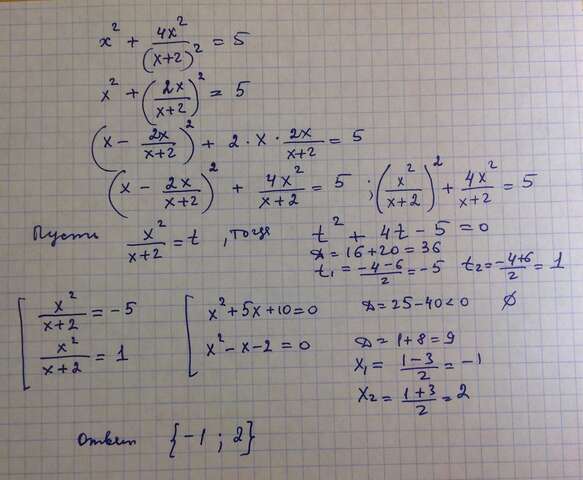 x² + 4x²/(x+2)² = 5
x² + (2x/(x+2))² = 5
(x − 2x/(x+2))² + 2·x·2x/(x+2) = 5
(x − 2x/(x+2))² + 4x²/(x+2) = 5 ; (x²/(x+2))² + 4x²/(x+2) = 5
Пусть x²/(x+2) = t , тогда t² + 4t − 5 = 0
D = 16 + 20 = 36
t₁ = (−4−6)/2 = −5 t₂ = (−4+6)/2 = 1
[ x²/(x+2) = −5 [ x² + 5x + 10 = 0 D = 25 − 40 < 0 ∅
x²/(x+2) = 1 x² − x − 2 = 0 D = 1 + 8 = 9
x₁ = (1−3)/2 = −1
x₂ = (1+3)/2 = 2
Ответ {−1 ; 2}